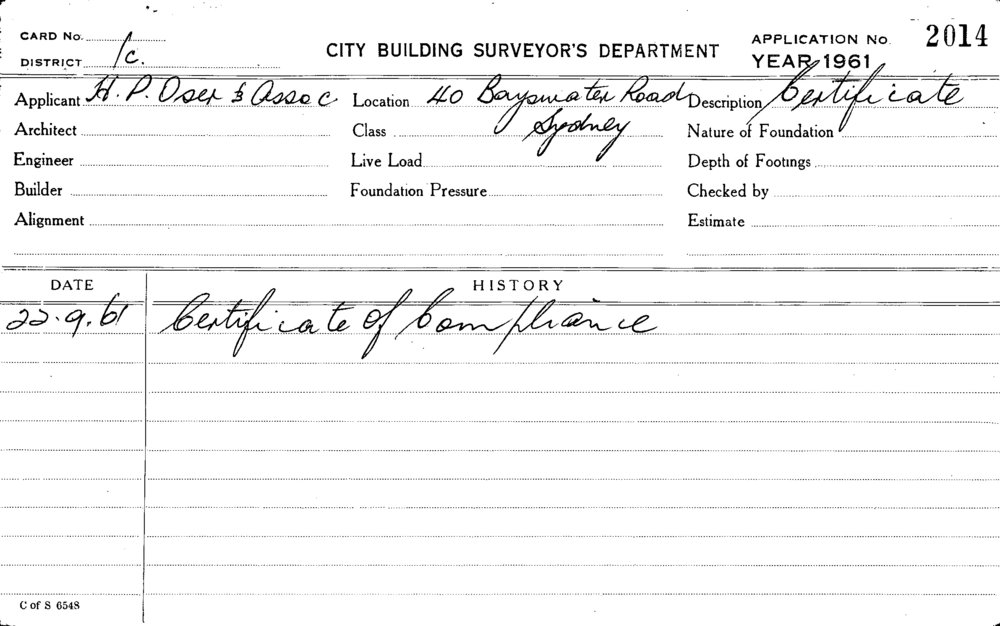 CARD No.
DISTRICT 1c.
CITY BUILDING SURVEYOR'S DEPARTMENT
APPLICATION No. 2014
YEAR 1961
Applicant H. P. Oser & Assoc Location 40 Bayswater Road Description Certificate
Architect Class Sydney Nature of Foundation
Engineer Live Load Depth of Footings
Builder Foundation Pressure Checked by
Alignment Estimate
DATE HISTORY
22.9.61 Certificate of Compliance
C of S 6548